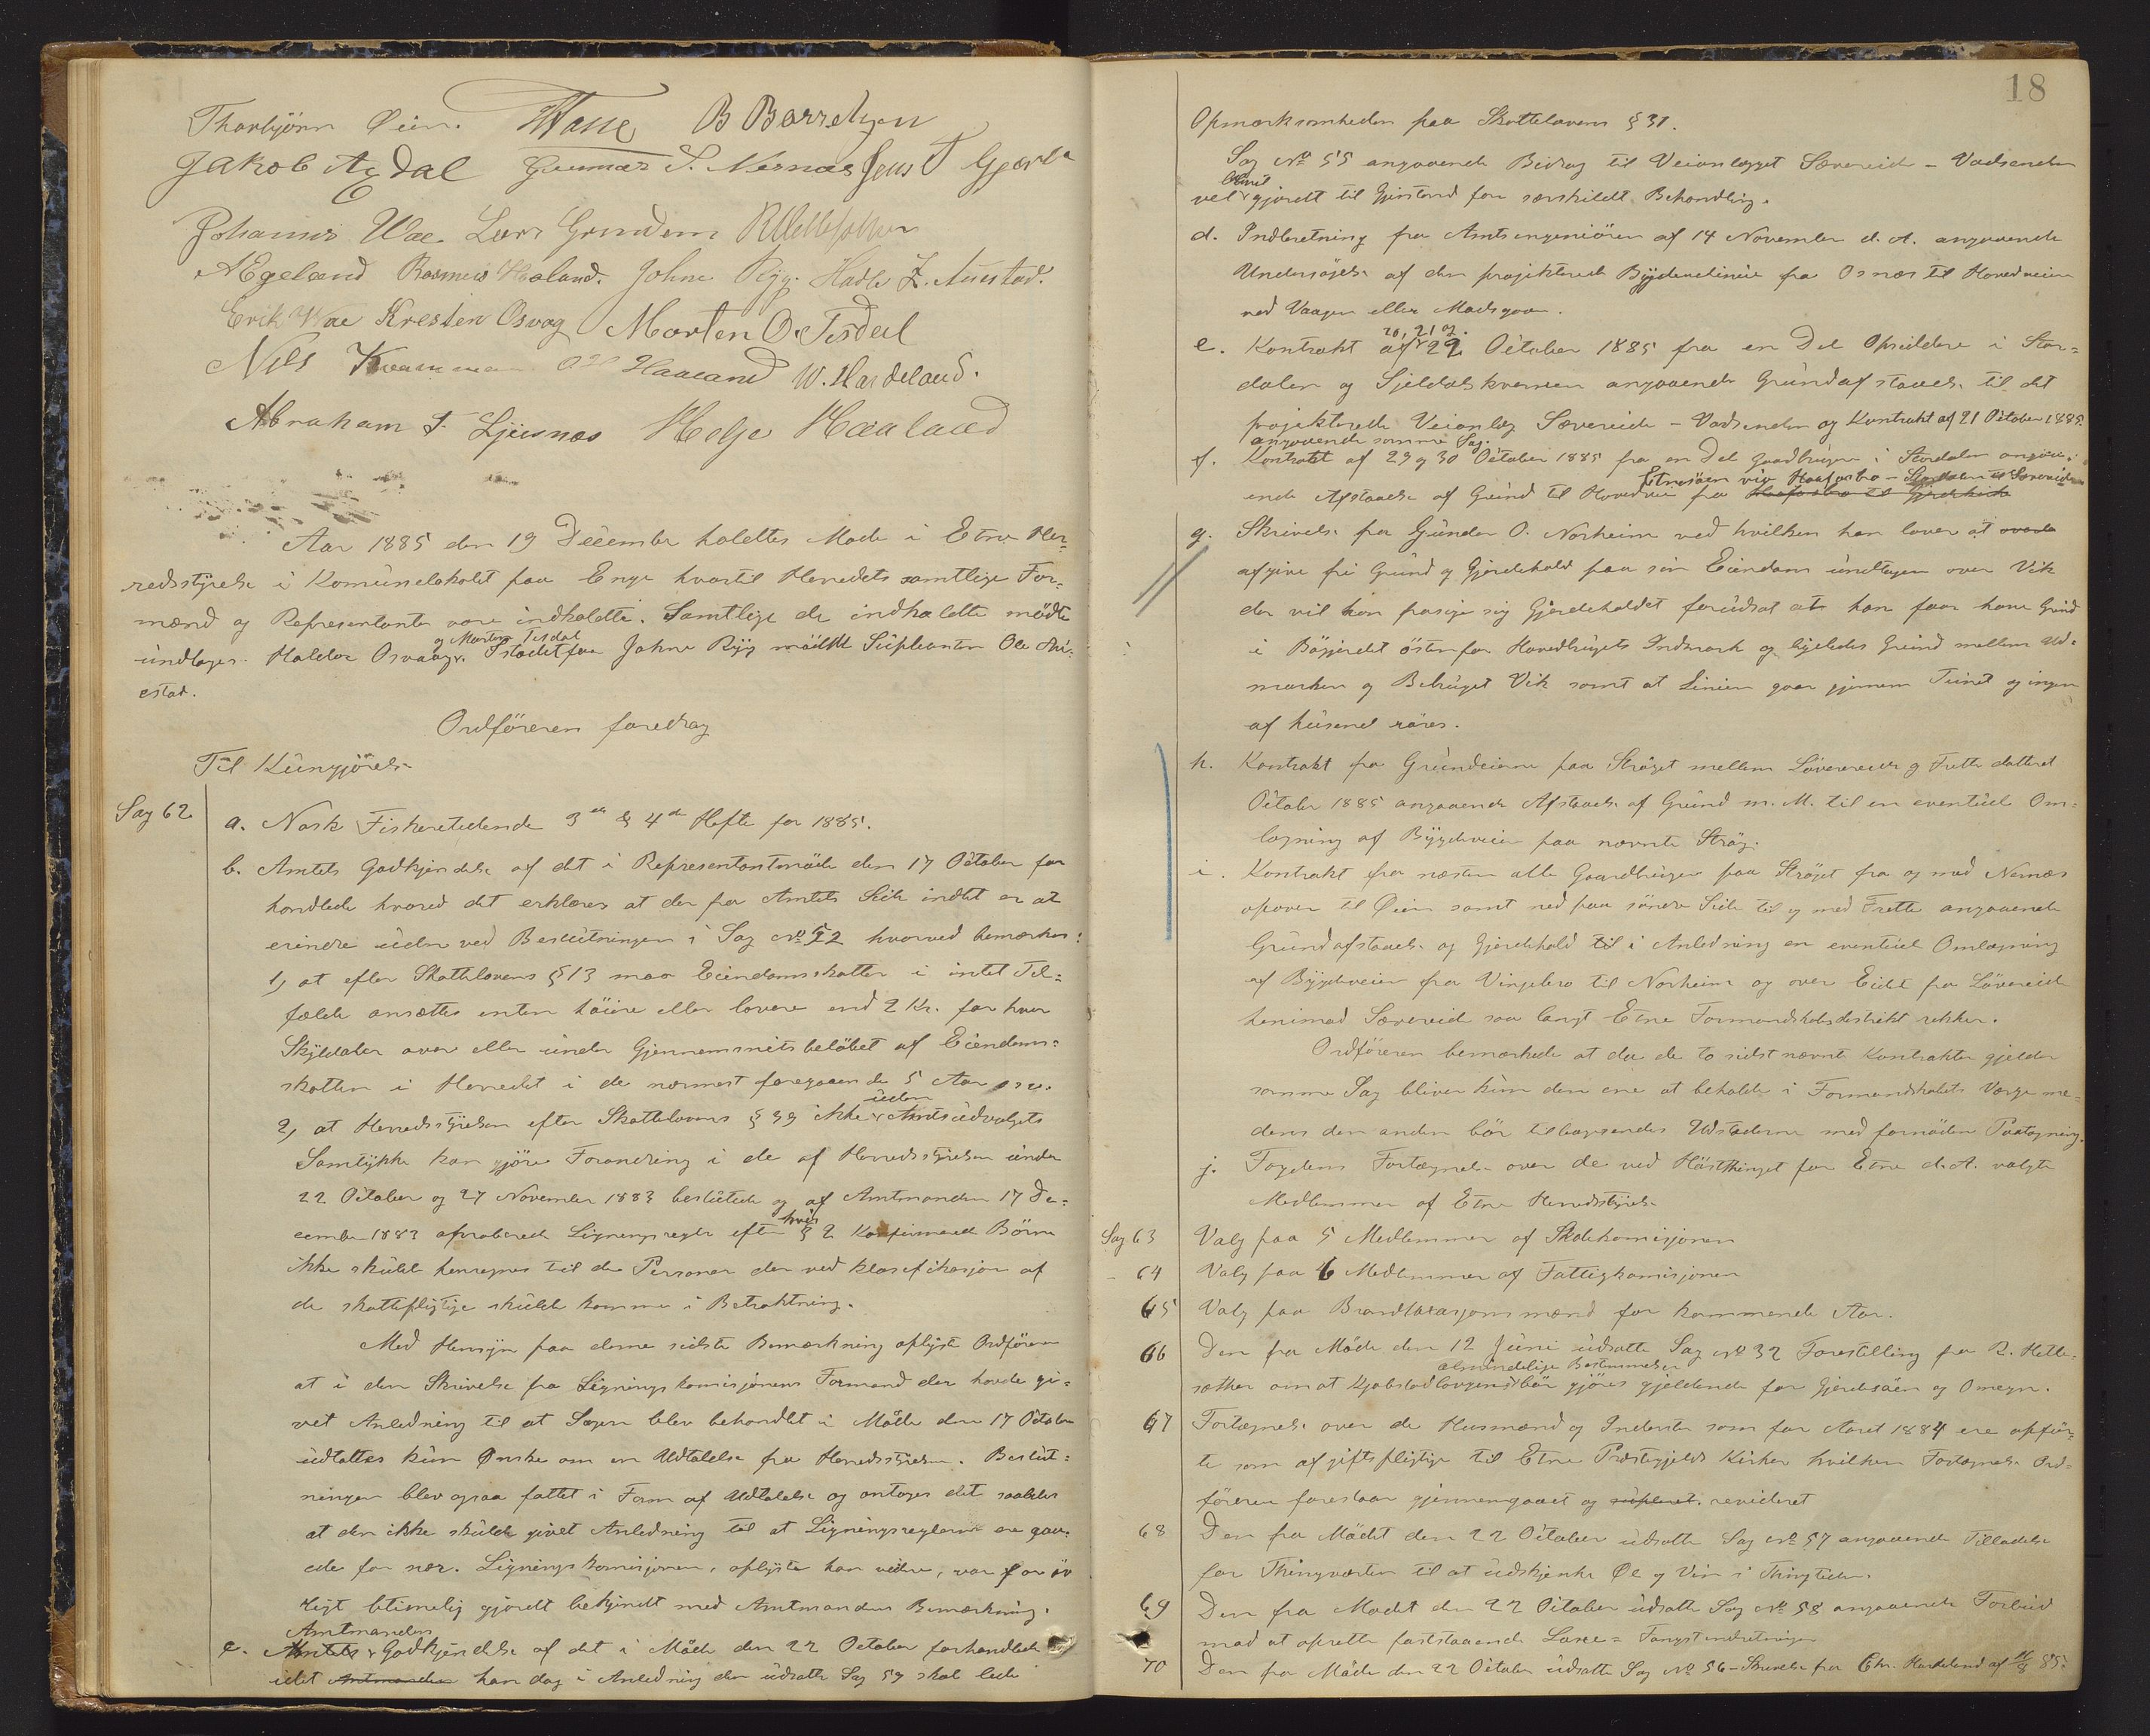 Thorbjörn Øien. B Børretzen
Jakob Aédal Gunnar S. Nernæs Jens T Gjerde
Johannes Wae. Lars Grindem
A Egeland Rasmus Haaland. Johne Ryg. Hadle Z. Austad.
Erik Wae Kresten Osvag Morten O. Tesdal
Nils Kvammen Haaland W. Hardeland.
Abraham T. Ljusnæs Helge Haaland
Aar 1885 den 19 December holdtes Møde i Etne Her-
redsstyrelse i Komunelokalet paa Enge hvortil Herredets samtlige For-
mænd og Representanter vare indkaldte. Samtlige de indkaldte mödte
og Morten Tesdal
undtagen Haldor Osvaag. Istedetfor Johne Ryg mødte Supleanten Ole Au-
estad.
Ordføreren foredrog
Til Kungjørelse
Sag 62
a. Norsk Fiskeretidende 3de & 4de Hefte for 1885.
b. Amtets Godkjendelse af det i Representantmøde den 17 October for
handlede hvorved det erklæres at der fra Amtets Side intet er at
erindre uden ved Beslutningen i Sag No 52 hvorved bemærkes:
1, at efter Skattelovens § 13 maa Eiendomsskatten i intet Til-
fælde ansættes enten høiere eller lavere end 2 Kr. for hver
Skylddaler over eller under Gjennemsnitsbeløbet af Eiendoms-
skatten i Herredet i de nærmest foregaaende 5 Aar osv.
uden
2, at Herredsstyrelsen efter Skattelovens § 39 ikke Amtsudvalgets
Samtykke kan gjøre Forandring i de af Herredsstyrelsen under
22 October og 27 November 1883 besluttede og af Amtmanden 17 De-
hvis
cember 1883 aprobered Ligningsregler efter § 2 Konfirmerede Børn
ikke skulde henregnes til de Personer der ved klassifikasjon af
de skattepligtige skulde komme i Betraktning.
Med Hensyn paa denne sidste Bemærkning oplyste Ordføreren
at i den Skrivelse fra Ligningskomisjonens Formand der havde gi-
vet Anledning til at Sagen blev behandlet i Møde den 17 October
udtaltes kun Ønske om en Udtalelse fra Herredsstyrelsen. Beslut-
ningen blev ogsaa fattet i Form af Udtalelse og antoges det saaledes
at den ikke skulde givet Anledning til at Ligningsreglerne ere gaa-
ede for nær. Ligningskomisjonen, oplyste han videre, var for öv
rigt betimelig gjordt bekjendt med Amtmandens Bemærkning.
Amtmandens
c. Amtets Godkjendelse af det i Møde den 22 October forhandlede
idet Amtmanden han dog i Anledning den udsatte Sag 59 skal lede
18
Opmærksomheden paa Skattelovens § 31.
Sag No 55 angaaende Bidrag til Veianlægget Sævereid - Vadsenden
blevet
vel gjordt til Gjenstand for særskildt Behandling.
d. Indberetning fra Amtsingeniören af 14 November d. A. angaaende
Undersøgelse af den projekterede Bygdeveilinie fra Osnæs til Hovedveien
ved Vaagen eller Madsgaa.
20, 21 og
e. Kontrakt af 22 October 1885 fra en Del Opsiddere i Stor-
dalen og Sjeldalskvernen angaaende Grundafstaaelse til det
projekterede Veianlæg Sævereide - Vadsenden og Kontrakt af 21 October 1885
angaaende samme Sag.
f. Kontrakt af 29 og 30 October 1885 fra en Del Gaardbrugere i Stordalen angaa-
Etnesöen via Haafosbro - Stordalen til Sævereide
ende Afstaaelse af Grund til Hovedvei fra Haafosbro til
g. Skrivelse fra Gunder O. Norheim ved hvilken han lover at
afgive fri Grund og Gjerdehold paa sin Eiendom undtagen over Vik
der vil han frasige sig Gjerdeholdet forudsat at han faar have Grind
i Bögjerdet östenfor Hovedbrugets Indmark og ligeledes Grind mellem Ud-
marken og Bebruget Vik samt at Linien gaar gjennem Tunet og ingen
af husene röres.
h. Kontrakt fra Grundeierne paa Strøget mellem Lövereide og Frette datteret
October 1885 angaaende Afstaaelse af Grund m. M. til en eventuel Om-
lægning af Bygdeveien paa nævnte Strøg.
i. Kontrakt fra næsten alle Gaardbrugere paa Strøget fra og med Nernæs
opover til Øien samt ned paa søndre Side til og med Frette angaaende
Grundafstaaelse og Gjerdehold til i Anledning en eventuel Omlægning
af Bygdeveien fra Vinjebro til Norheim og over Eidet fra Lövereide
henimod Sævereide saa langt Etne Formandskabsdistrikt rekker.
Ordføreren bemærkede at da de to sidst nævnte Kontrakter gjelder
samme Sag bliver kun den ene at beholde i Formandskabets Værge me-
dens den anden bör tilbagesendes Udstederne med fornöden Paategning.
j. Fogdens Fortægnelse over de ved Høstthinget for Etne d. A. valgte
Medlemmer af Etne Herredsstyrelse
Sag 63 Valg paa 5 Medlemmer af Skolekomisjonen
- 64 Valg paa 6 Medlemmer af Fattigkomisjonen
65 Valg paa Brandtaxasjonsmænd for kommende Aar.
66 Den fra Møde den 12 Juni udsatte Sag No 32 Forestilling fra R. Hette-
almindelige Bestemmelser
sæther om at Kjøbstadlovgivns bör gjöres gjeldende for Gjerdesöen og Omegn.
67 Fortegnelse over de Husmænd og Inderster som for Aaret 1884 ere opför-
te som afgiftspligtige til Etne Præstegjelds Kirker hvilken Fortegnelse Ord-
föreren foreslaar gjennemgaaet og revideret
68 Den fra Mødet den 22 October udsatte Sag No 57 angaaende Tilladelse
for Thingverten til at udskjenke Øl og Vin i Thingtiden.
69 Den fra Mødet den 22 October udsatte Sag No 58 angaaende Forbud
mod at oprette faststaaende Laxe- Fangstindretninger
70 Den fra Møde den 22 October udsatte Sag No 56 - Skrivelse fra Chr. Hardeland af 85.